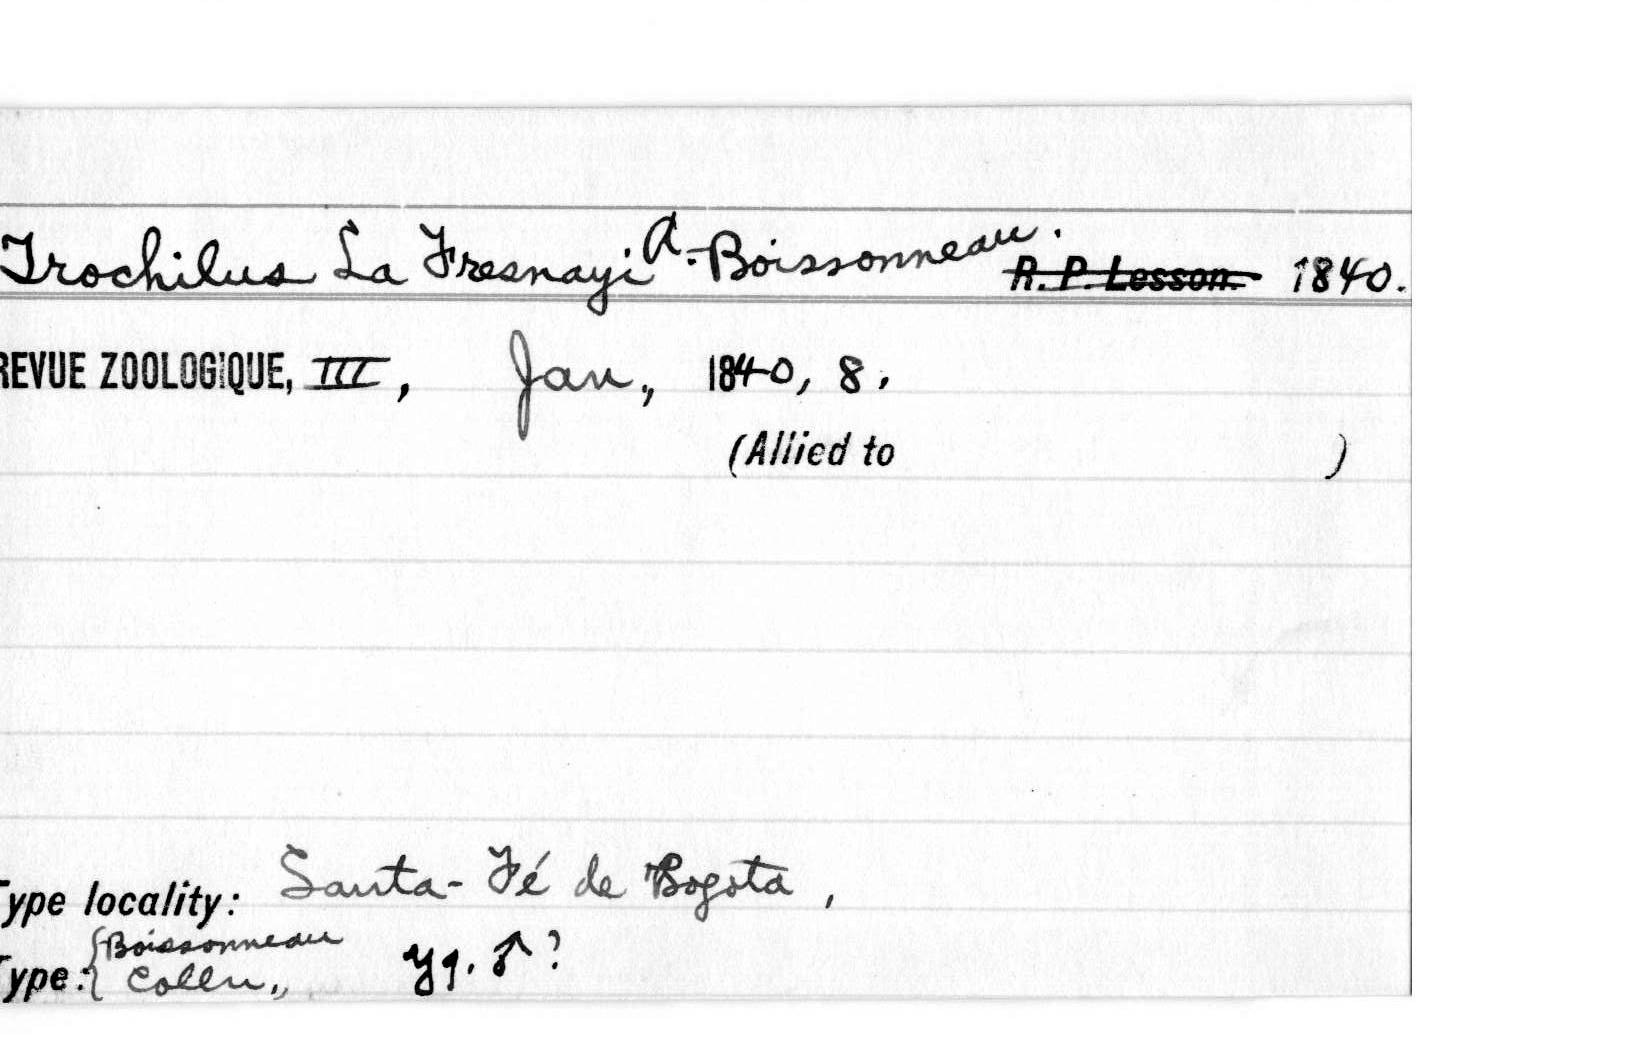 Trochilus La Fresnayi A. Boissonneau. R. P. Lesson. 1840.
REVUE ZOOLOGIQUE, III, Jan., 1840, 8.
(Allied to )
Type locality: Santa-Fé de Bogota,
Type: {Boissonneau Colln., yg. ♂?